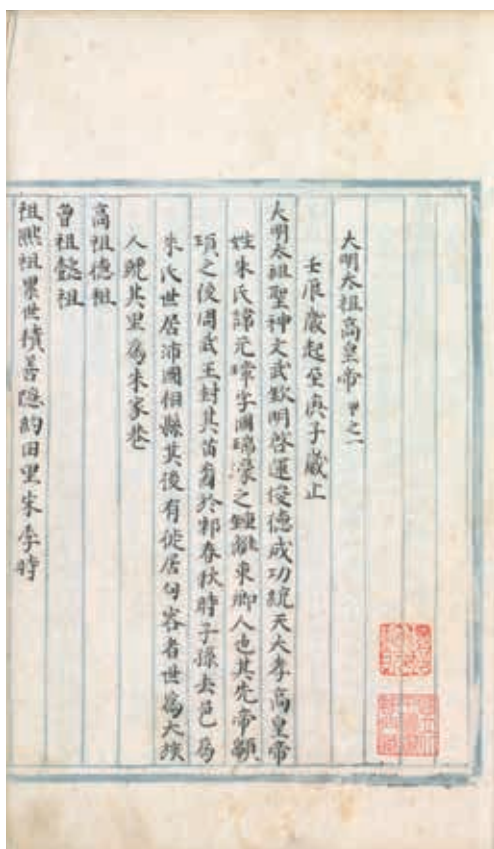 大明太祖高皇帝 甲之一
壬辰歲起至庚子歲止
大明太祖聖神文武欽明啓運俊德成功統天大孝高皇帝
姓朱氏諱元璋字國瑞濠之鍾離東鄉人也其先帝顓
頊之後周武王封其苗裔於邾春秋時子孫去邑為
朱氏世居沛國相縣其後有徙居句容者世為大族
人號其里為朱家巷
高祖德祖
曾祖懿祖
祖熙祖累世積善隱約田里宋季時